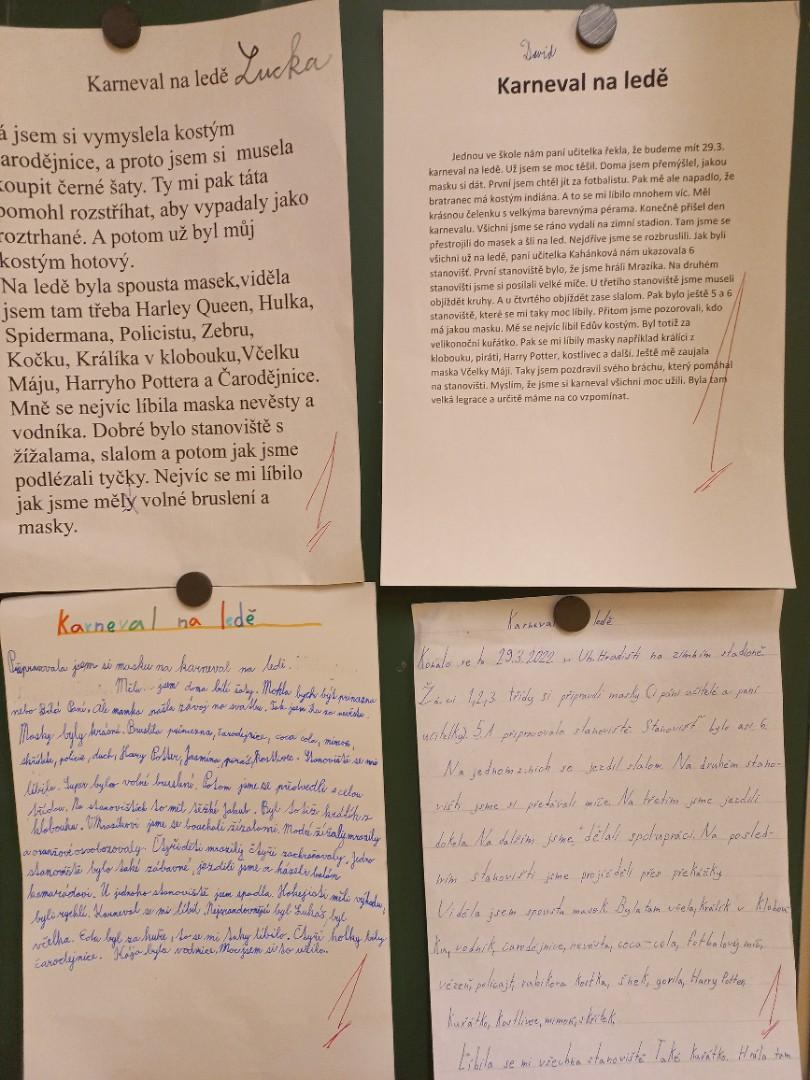 Karneval na ledě Lucka
á jsem si vymyslela kostým
arodějnice, a proto jsem si musela
koupit černé šaty. Ty mi pak táta
pomohl rozstříhat, aby vypadaly jako
roztrhané. A potom už byl můj
kostým hotový.
Na ledě byla spousta masek,viděla
jsem tam třeba Harley Queen, Hulka,
Spidermana, Policistu, Zebru,
Kočku, Králíka v klobouku,Včelku
Máju, Harryho Pottera a Čarodějnice.
Mně se nejvíc líbila maska nevěsty a
vodníka. Dobré bylo stanoviště s
žížalama, slalom a potom jak jsme
podlézali tyčky. Nejvíc se mi líbilo
jak jsme měly volné bruslení a
masky.
1
David
Karneval na ledě
Jednou ve škole nám paní učitelka řekla, že budeme mít 29.3.
karneval na ledě. Už jsem se moc těšil. Doma jsem přemýšlel, jakou
masku si dát. První jsem chtěl jít za fotbalistu. Pak mě ale napadlo, že
bratranec má kostým indiána. A to se mi líbilo mnohem víc. Měl
krásnou čelenku s velkýma barevnýma pérama. Konečně přišel den
karnevalu. Všichni jsme se ráno vydali na zimní stadion. Tam jsme se
přestrojili do masek a šli na led. Nejdříve jsme se rozbruslili. Jak byli
všichni už na ledě, paní učitelka Kahánková nám ukazovala 6
stanovišť. První stanoviště bylo, že jsme hráli Mrazíka. Na druhém
stanovišti jsme si posílali velké míče. U třetího stanoviště jsme museli
objíždět kruhy. A u čtvrtého objíždět zase slalom. Pak bylo ještě 5 a 6
stanoviště, které se mi taky moc líbily. Přitom jsme pozorovali, kdo
má jakou masku. Mé se nejvíc líbil Edův kostým. Byl totiž za
velikonoční kuřátko. Pak se mi líbily masky například králíci z
klobouku, piráti, Harry Potter, kostlivec a další. Ještě mě zaujala
maska Včelky Máji. Taky jsem pozdravil svého bráchu, který pomáhal
na stanovišti. Myslím, že jsme si karneval všichni moc užili. Byla tam
velká legrace a určitě máme na co vzpomínat.
1
Karneval na ledě
Připravovala jsem si masku na karneval na ledi.
Měla jsem doma bílé šaty. Mohla bych být princezna
nebo Bílá Paní. Ale mamka našla závoj na svatbu. Tak jsem šla za nevěstu.
Masky byly krásné. Bruslila princezna, čarodějnice, coca cola, mimoň,
skřítek, policie, duch, Harry Potter, Jasmína, pirát, kostlivec. Stanoviště se mi
líbila. Super bylo volné bruslení. Potom jsme se předvedli s celou
třídou. Na stanovištích to měl těžké Jakub. Byl totiž králík z
klobouka. V Mrazíkovi jsme se bouchali žížalami. Modré žížaly mrazily
a oranžové osvobozovaly. Čtyři děti mrazily čtyři zachraňovaly. Jedno
stanoviště bylo také zábavné, jezdili jsme a házeli balón
kamarádovi. U jednoho stanoviště jsem spadla. Hokejisti měli výhodu,
byli rychlí. Karneval se mi líbil. Nejsrandovnější byl Lukáš byl
včelka. Eda byl za kuře, to se mi taky líbilo. Čtyři holky byly
čarodějnice. Kája byla vodnice. Moc jsem si to užila.
1
Karneval ledě
Konalo se to 29.3.2022 v Uh.Hradišti na zimním stadioně
Žáci 1,2,3 třídy si připravili masky Ci páni učitelé a paní
učitelky. 5.A připravovala stanoviště Stanovišť bylo asi 6.
Na jednom z nich se jezdil slalom. Na druhém stano-
višti jsme si předávali míče. Na třetím jsme jezdili
dokola. Na dalším jsme dělali spolupráci. Na posled-
ním stanovišti jsme projížděli přes překážky
Viděla jsem spousta masek. Byla tam včela, králík v klobou-
ku, vodník, čarodejnice, nevěsta, coca-cola, fotbalový míč,
vězeni, policajt, rubikova kostka, šnek, gorila, Harry Potter,
Kuřátko, Kostlivec, mimoň, skřítek.
Líbila se mi všechna stanoviště Také kuřátko. Hrála tam
1